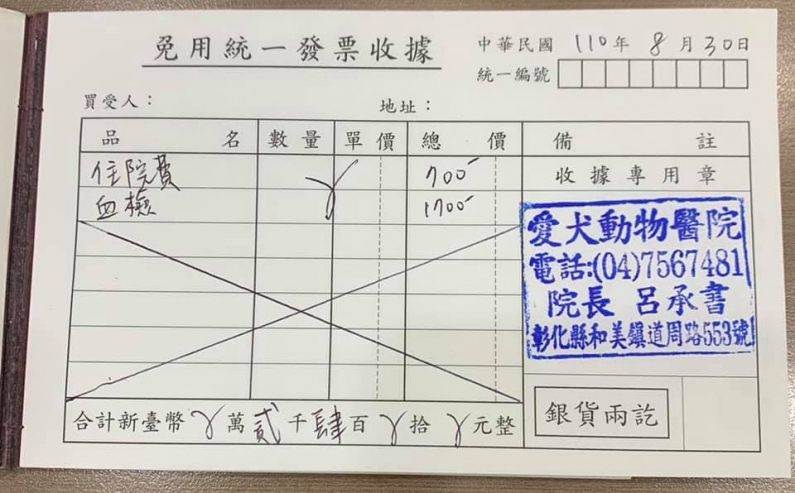 免用統一發票收據
中華民國 110年 8月30日
統一編號
買受人： 地址：
品名 數量 單價 總價 備註
住院費 700 收據專用章
血檢 1700
愛犬動物醫院
電話:(04)7567481
院長 呂承書
彰化縣和美鎮道周路553號
合計新臺幣 萬貳千肆百 拾 元整
銀貨兩訖